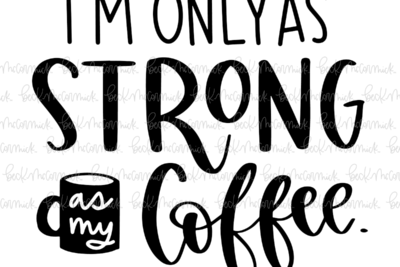 I'M ONLY AS
STRONG
as my
Coffee.